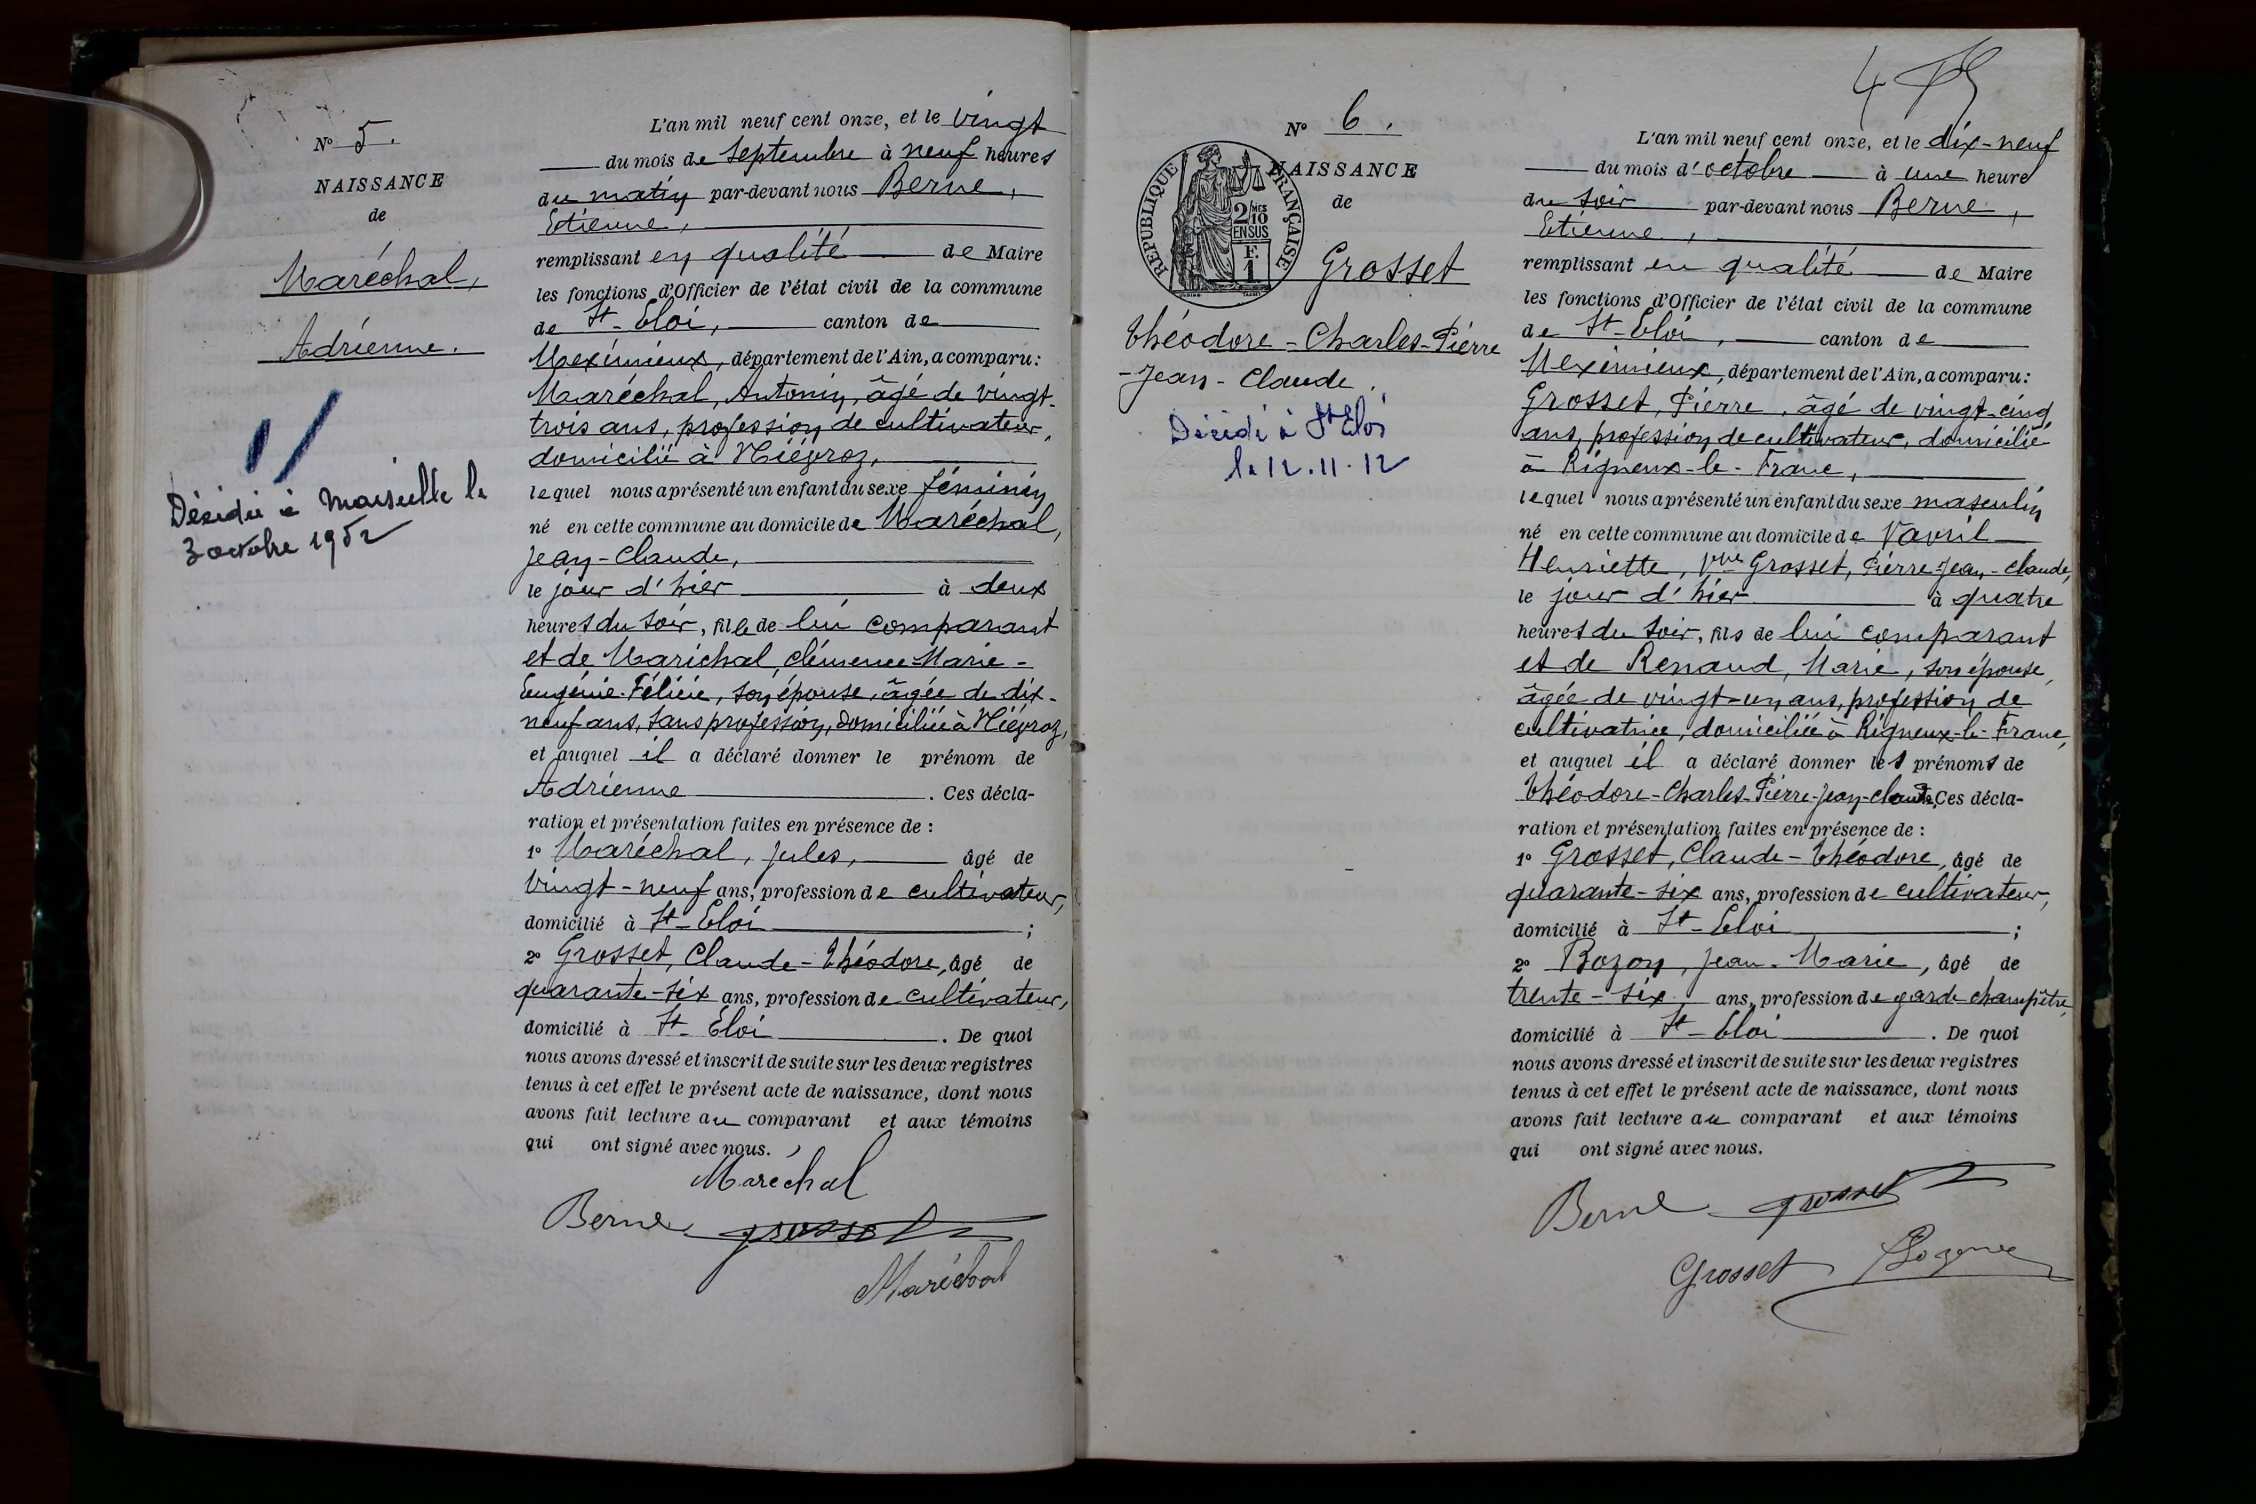 N° 5.
NAISSANCE
de
Maréchal,
Adrienne.
Décédée à Marseille le
3 octobre 1952
L'an mil neuf cent onze, et le vingt
du mois de Septembre à neuf heures
du matin par-devant nous Berne,
Etienne,
remplissant en qualité de Maire
les fonctions d'Officier de l'état civil de la commune
de St-Eloi, canton de
Meximieux, département de l'Ain, a comparu:
Maréchal, Antonin, âgé de vingt-
trois ans, profession de cultivateur,
domicilié à Niégroz,
lequel nous a présenté un enfant du sexe féminin
né en cette commune au domicile de Maréchal,
Jean-Claude,
le jour d'hier à deux
heures du soir, fille de lui comparant
et de Maréchal, Clémence-Marie-
Eugénie-Félicie, son épouse, âgée de dix-
neuf ans, sans profession, domiciliée à Niégroz,
et auquel il a déclaré donner le prénom de
Adrienne. Ces décla-
ration et présentation faites en présence de :
1° Maréchal, Jules, âgé de
vingt-neuf ans, profession de cultivateur,
domicilié à St-Eloi ;
2° Grosset, Claude-Théodore, âgé de
quarante-six ans, profession de cultivateur,
domicilié à St-Eloi. De quoi
nous avons dressé et inscrit de suite sur les deux registres
tenus à cet effet le présent acte de naissance, dont nous
avons fait lecture au comparant et aux témoins
qui ont signé avec nous.
Maréchal
Berne grosset
Maréchal
N° 6.
NAISSANCE
de
REPUBLIQUE FRANÇAISE
2/10 EN SUS
F. 1
Grosset
Théodore-Charles-Pierre
-Jean-Claude.
Décédé à St Eloi
le 12.11.12
L'an mil neuf cent onze, et le dix-neuf
du mois d'octobre à une heure
du soir par-devant nous Berne,
Etienne,
remplissant en qualité de Maire
les fonctions d'Officier de l'état civil de la commune
de St-Eloi, canton de
Meximieux, département de l'Ain, a comparu:
Grosset, Pierre, âgé de vingt-cinq
ans, profession de cultivateur, domicilié
à Rigneux-le-Franc,
lequel nous a présenté un enfant du sexe masculin
né en cette commune au domicile de Vavril
Henriette, Vve Grosset, Pierre-Jean-Claude,
le jour d'hier à quatre
heures du soir, fils de lui comparant
et de Renaud, Marie, son épouse,
âgée de vingt-un ans, profession de
cultivatrice, domiciliée à Rigneux-le-Franc,
et auquel il a déclaré donner les prénoms de
Théodore-Charles-Pierre-Jean-Claude. Ces décla-
ration et présentation faites en présence de :
1° Grosset, Claude-Théodore, âgé de
quarante-six ans, profession de cultivateur,
domicilié à St-Eloi ;
2° Bozon, Jean-Marie, âgé de
trente-six, ans, profession de garde champêtre
domicilié à St-Eloi. De quoi
nous avons dressé et inscrit de suite sur les deux registres
tenus à cet effet le présent acte de naissance, dont nous
avons fait lecture au comparant et aux témoins
qui ont signé avec nous.
Berne grosset
Grosset Bozon